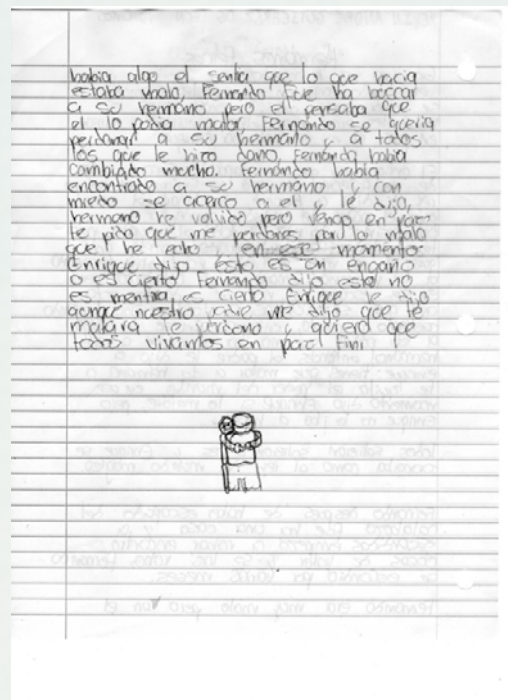 había algo el sentía que lo que hacia
estaba malo, Fernando fue ha boccar
a su hermano pero el pensaba que
el lo podia matar Fernando se queria
perdonar a su hermano y a todos
los que le hizo daño. Fernando había
cambiado mucho. Fernando había
encontrado a su hermano y con
miedo se acerco a el y le dijo,
hermano he volvido pero vengo en paz
te pido que me perdones por lo malo
que he echo en este momento.
Enrique dijo esto es un engaño
o es cierto Fernando dijo esto no
es mentira es cierto Enrique le dijo
aunque nuestro padre me dijo que te
matara te perdono y quiero que
todos vivamos en paz! Fin!